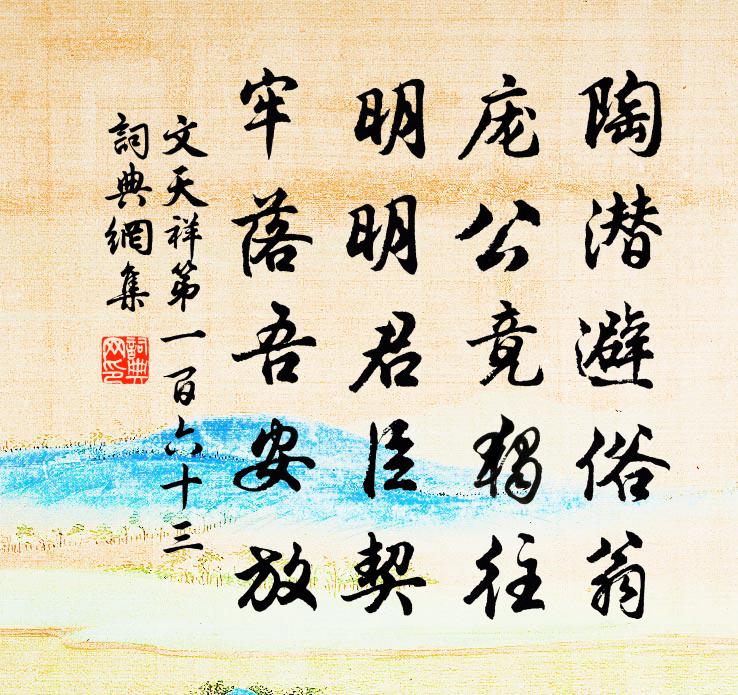 陶潜避俗翁
庞公竟独往
明明君臣契
牢落吾安放
文天祥第一百六十三
詞典網集
詞典
网印